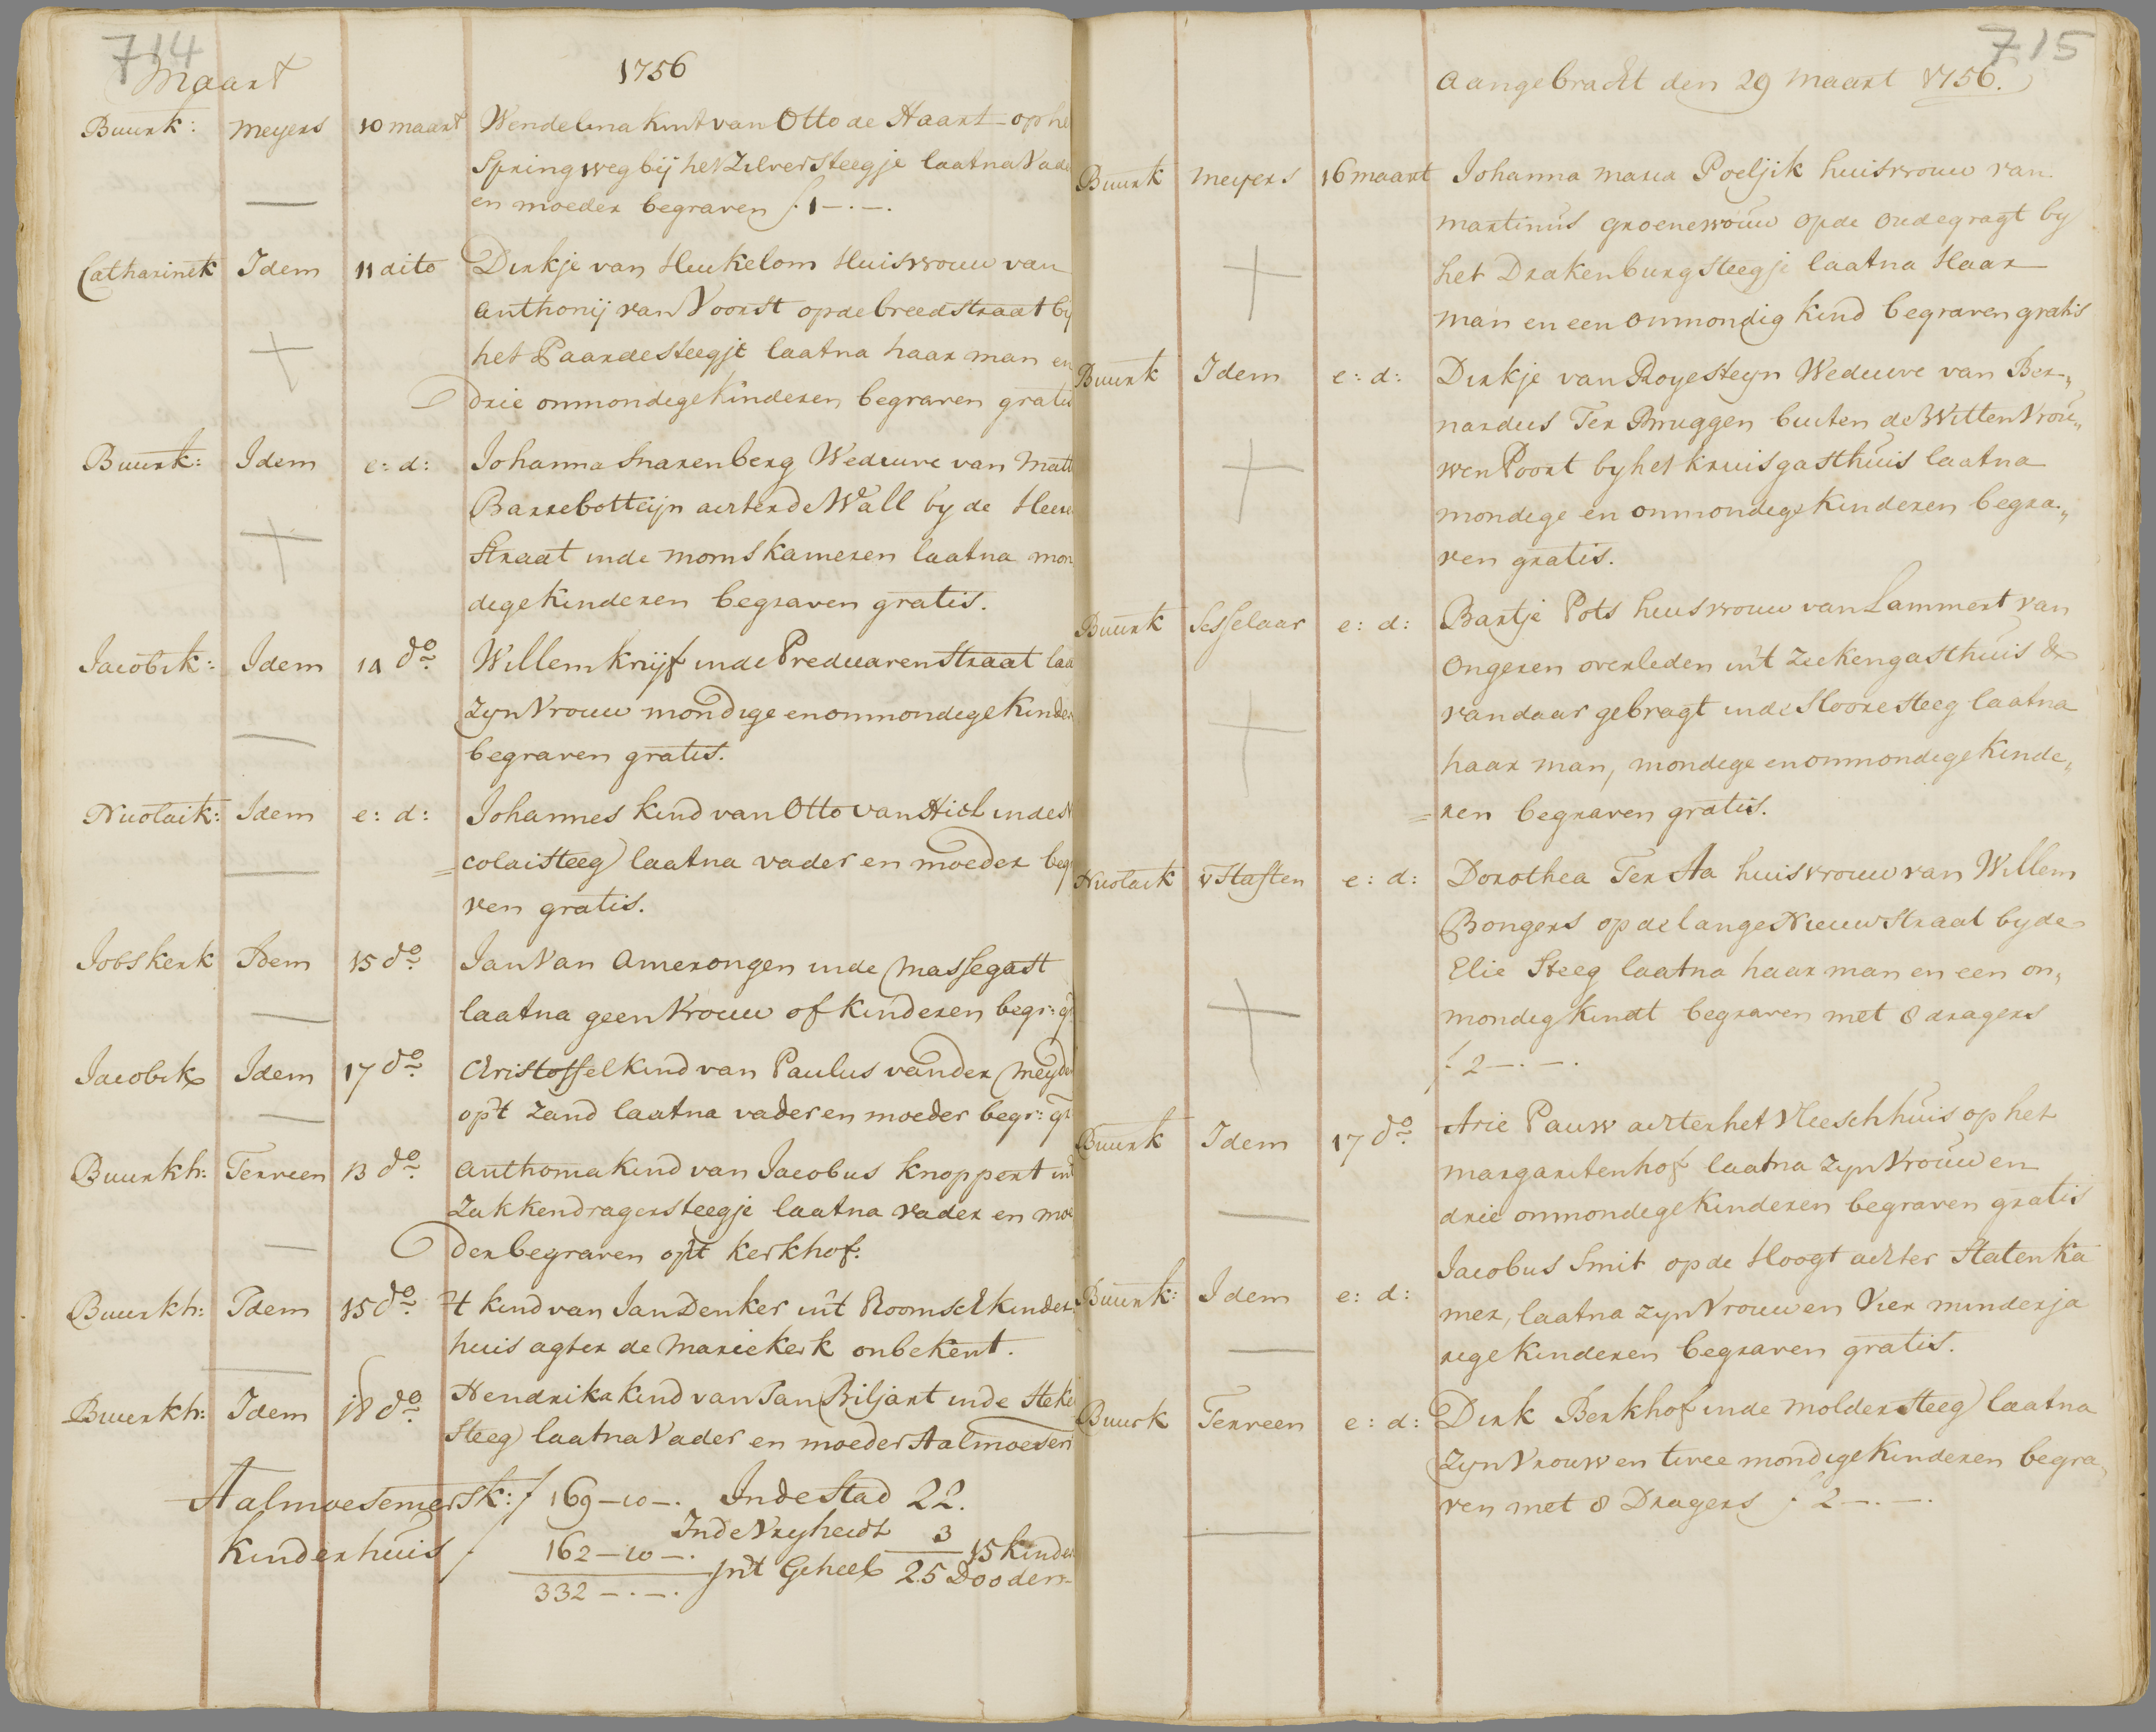 714
Maart
1756
Buurk: Meyers 10 maart Wendelina kint van Otto de Haart op he
Springweg bij het Zilversteegje laat na Vade
en moeder begraven f 1-.-.
Catharinek Idem 11 dito Dirkje van Heukelom Huisvrouw van
Anthonij van Voorst op de breedstraat by
het Paardesteegje laat na haar man en
drie onmondige Kinderen begraven gratis
Buurk: Idem e: d: Johanna Snarenberg Weduwe van Matt
Barrebotteijn achter de Wall by de Heere
Straat in de moms kameren laat na mon
dige Kinderen begraven gratis.
Jacobik: Idem 14 do Willem kruijf in de Preduaren Straat laa
Zyn Vrouw mondige en onmondige Kinder
begraven gratis.
Nicolaik: Idem e: d: Johannes kind van Otto van Hiel in de N
colaisteeg laat na vader en moeder beg
ven gratis.
Jobskerk Idem 15 do Jan Van Amerongen in de Massegast
laat na geen Vrouw of Kinderen begr: g
Jacobik Idem 17 do Christoffel kind van Paulus vander Meyde
op't Zand laat na vader en moeder begr: gr
Buurkh: Terveen 13 do Anthonia kind van Jacobus Knoppert in
Zakkendragersteegje laat na vader en moe
der begraven op't kerkhof.
Buurkh: Idem 15 do 't kind van Jan Denker uit Roomsch kinder
huis agter de Mariekerk onbekent.
Buurkh: Idem 18 do Hendrika kind van Jan Biljart in de Steke
Steeg laat na Vader en moeder Aalmoesen
Aalmoeseniersk: f 169-10-. In de Stad 22.
In de Vryheidt 3
Kinderhuis f 162-10-. 15 kinde
332-.-. In't Geheel 25 Dooden
715
Aangebracht den 29 Maart 1756.
Buurk Meyers 16 maart Johanna Maria Poeljik huisvrouw van
Martinus Groenewouw op de Oudegragt by
het Drakenburgsteegje laat na Haar
man en een onmondig kind begraven gratis
Buurk Idem e: d: Dirkje van Royesteyn Weduwe van Ber„
nardus Ter Bruggen buiten de Witten Vrou„
wen Poort by het kruisgasthuis laat na
mondige en onmondige Kinderen begra„
ven gratis.
Buurk Sesselaar e: d: Bartje Pots huisvrouw van Lammert van
Ongeren overleden in't Ziekengasthuis &
van daar gebragt in de Sloore steeg laat na
haar man, mondige en onmondige Kinde„
ren begraven gratis.
Nicolaik v Staften e: d: Dorothea Ter Aa huisvrouw van Willem
Bongers op de lange Nieuwstraat by de
Elie Steeg laat na haar man en een on„
mondig Kindt begraven met 8 dragers
f 2-.-.
Buurk Idem 17 do Arie Pauw achter het Vleeschhuis op het
Margaretenhof laat na Zyn Vrouw en
drie onmondige Kinderen begraven gratis
Buurk: Idem e: d: Jacobus Smit op de Hoogt achter Staten ka
mer, laat na zyn Vrouw en Vier minderja
rige Kinderen begraven gratis.
Buurk Terveen e: d: Dirk Berkhof in de Moldersteeg laat na
Zyn Vrouw en twee mondige Kinderen begra„
ven met 8 Dragers f 2-.-.